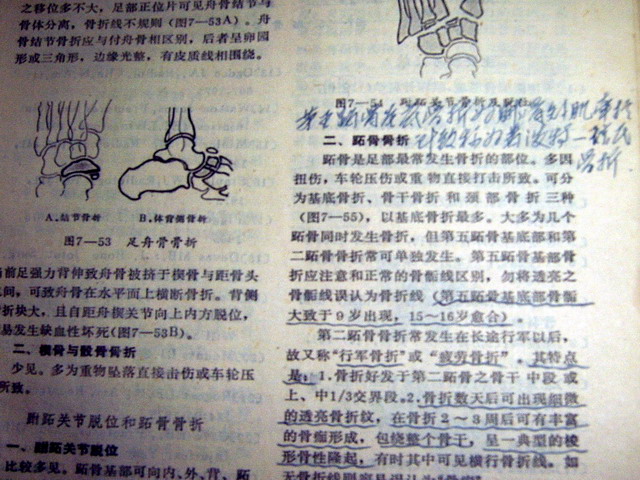 之移位多不大，足部正位片可见舟骨结节与
骨体分离，骨折线不规则（图7—53A）。舟
骨结节骨折应与付舟骨相区别，后者呈卵圆
形或三角形，边缘光整，有皮质线相围绕。
A.结节骨折
B.体背侧骨折
图7—53 足舟骨骨折
当前足强力背伸致舟骨被挤于楔骨与距骨头
间，可致舟骨在水平面上横断骨折。背侧
折块大，且自距舟楔关节向上内方脱位，
易发生缺血性坏死(图7—53B)。
二、楔骨与骰骨骨折
少见。多为重物坠落直接击伤或车轮压
所致。
跗跖关节脱位和跖骨骨折
一、跗跖关节脱位
比较多见。跖骨基部可向内、外、背、跖
图7—54 跗跖关节骨折及脱位
二、跖骨骨折
跖骨是足部最常发生骨折的部位。多因
扭伤，车轮压伤或重物直接打击所致。可分
为基底骨折、骨干骨折和颈部骨折三种
(图7—55)，以基底骨折最多。大多为几个
跖骨同时发生骨折，但第五跖骨基底部和第
二跖骨骨折常可单独发生。第五跖骨基部骨
折应注意和正常的骨骺线区别，勿将透亮之
骨骺线误认为骨折线（第五跖骨基底部骨骺
大致于9岁出现，15～16岁愈合）。
第二跖骨骨折常发生在长途行军以后，
故又称“行军骨折”或“疲劳骨折”。其特点
是：1.骨折好发于第二跖骨之骨干中段或
上、中1/3交界段。2.骨折数天后可出现细微
的透亮骨折纹，在骨折2～3周后可有丰富
的骨痂形成，包绕整个骨干，呈一典型的梭
形骨性隆起，有时其中可见横行骨折线。如